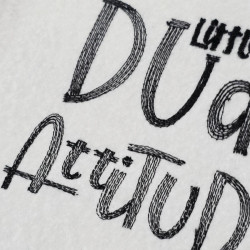 Littl
Dua
AttiTUD